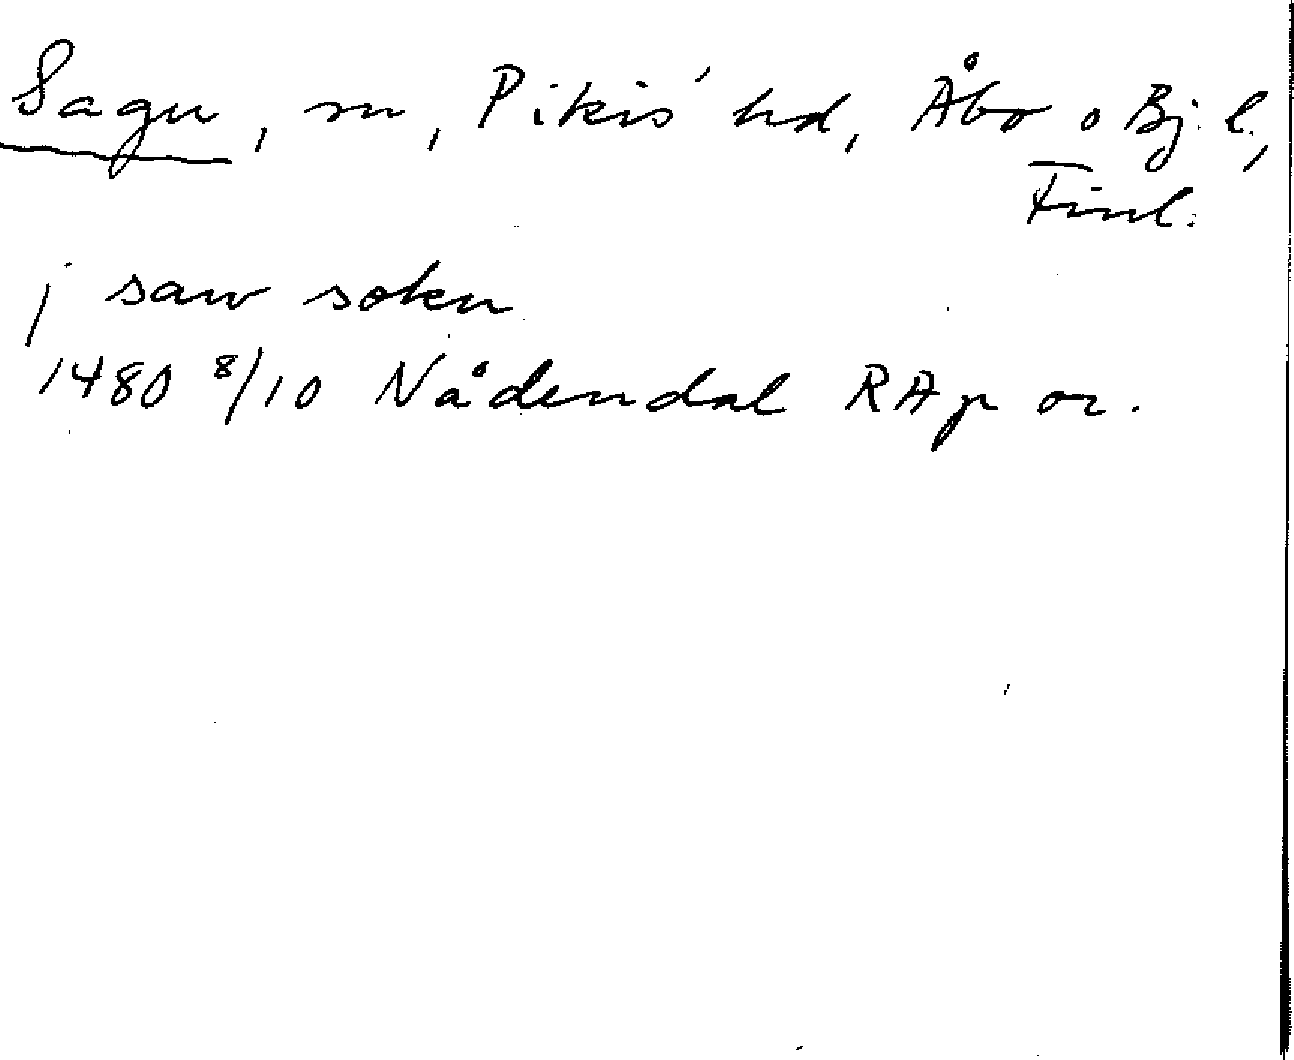 Sagu, sn, Pikis' hd, Åbo o Bj. l.,
Finl.
j saw sokn
1480 8/10 Nådendal RAp or.